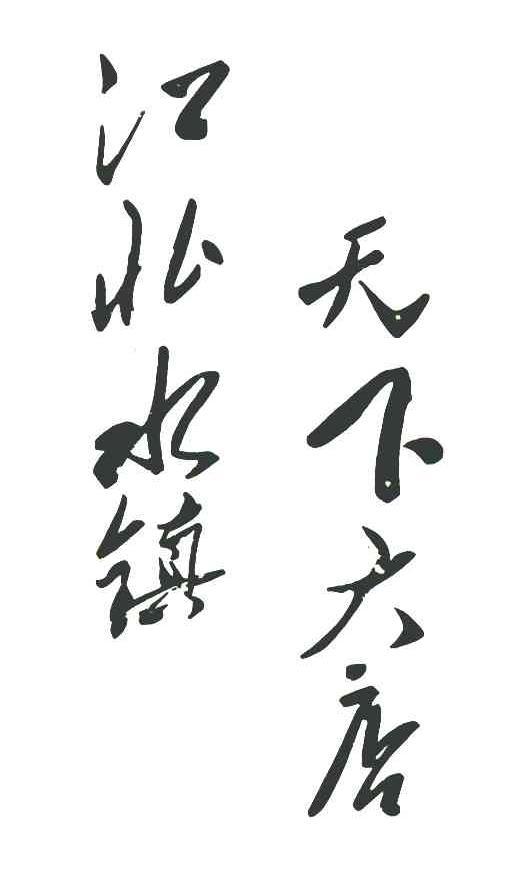 天下大店
江北水镇